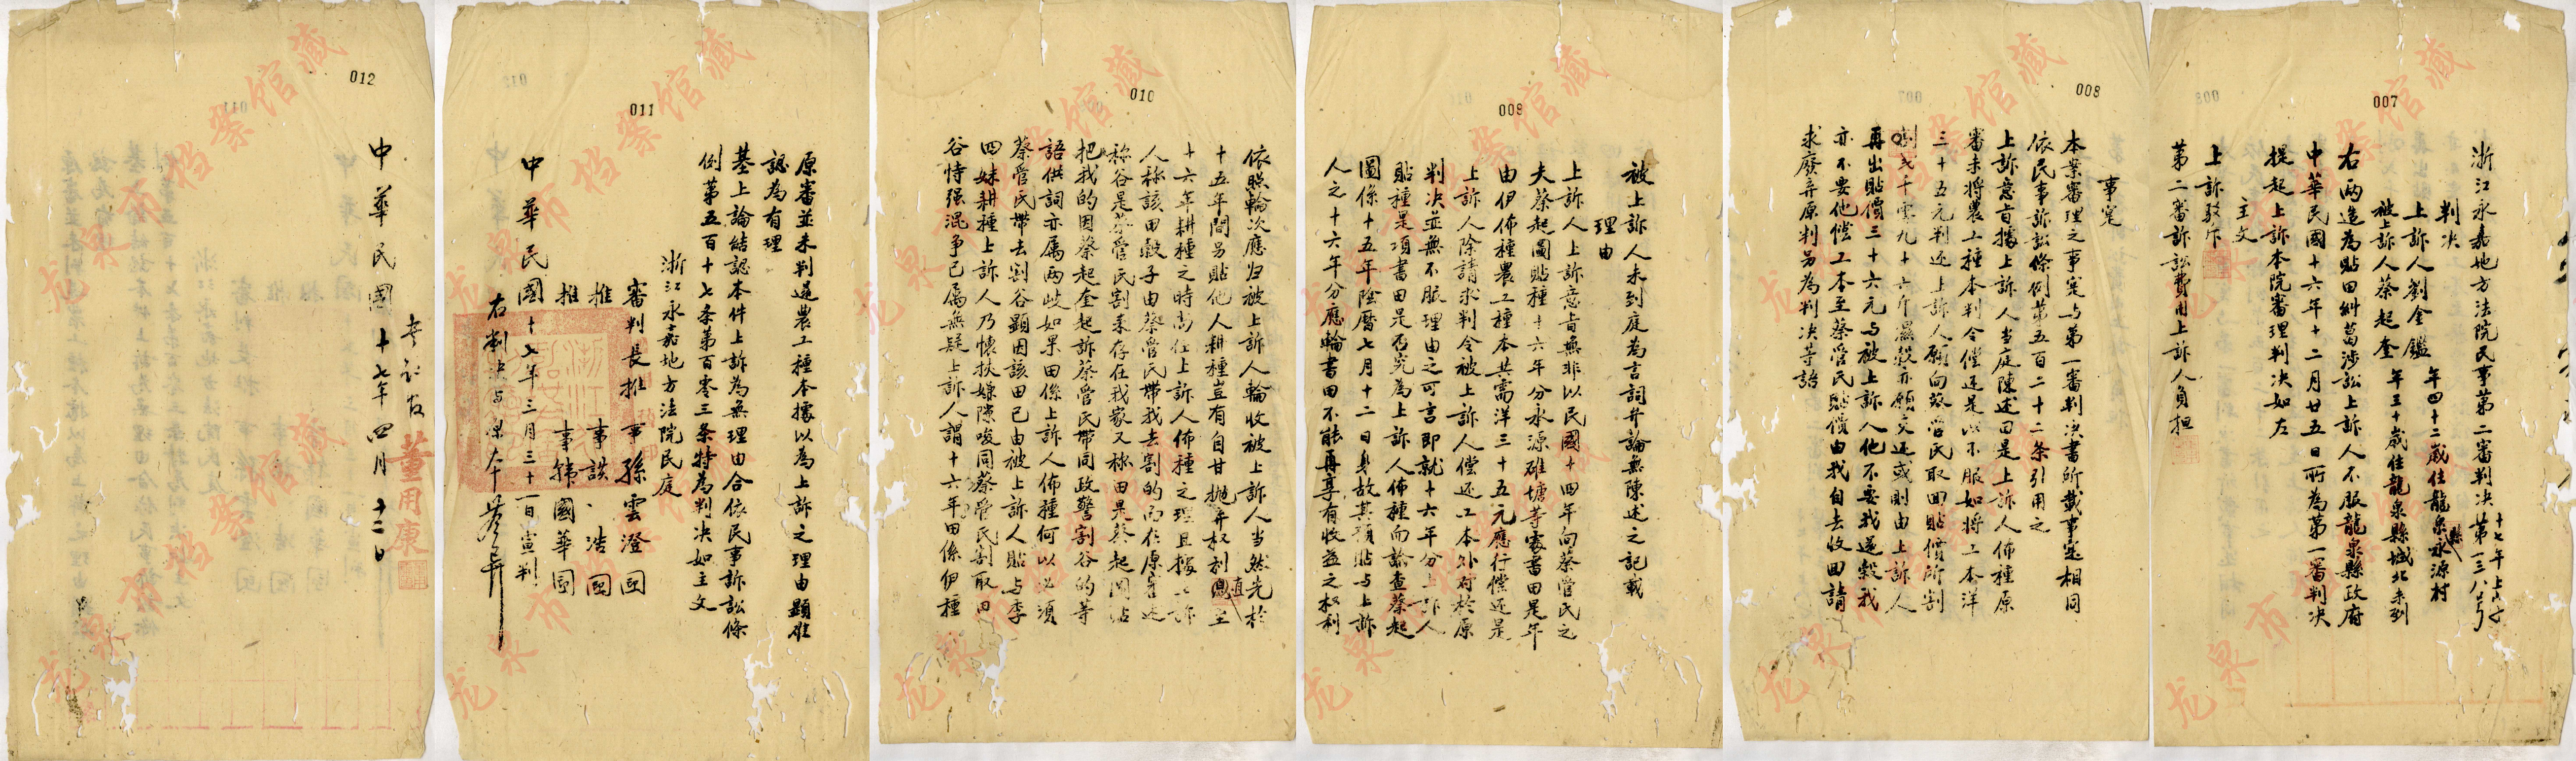 007
浙江永嘉地方法院民事第二審判決 十七年上字第一三八号
判决
上訴人劉金鑑 年四十二歲住龍泉縣永源村
被上訴人蔡起奎 年三十歲住龍泉縣城北未到
右兩造為貼田糾葛涉訟上訴人不服龍泉縣政府
中華民國十六年十二月廿五日所為第一審判决
提起上訴本院審理判决如左
主文
上訴駁斥
第二審訴訟費用上訴人負担
008
事实
本案審理之事实与第一審判决書所載事实相同
依民事訴訟條例第五百二十二条引用之
上訴意旨據上訴人当庭陳述曰是上訴人佈種原
審未將農工種本判令償还是以不服如将工本洋
三十五元判还上訴人願向蔡管氏取回貼價所割
割去十零九十六斤濕穀亦願交还或則由上訴人
再出貼價三十六元与被上訴人他不要我還穀我
亦不要他償工本至蔡管氏貼價由我自去收回請
求廢弃原判另為判决等語
009
被上訴人未到庭為言詞弁論無陳述之記載
理由
上訴人上訴意旨無非以民國十四年向蔡管氏之
夫蔡起圖貼種十六年分永源碓塘等處書田是年
由伊佈種農工種本共需洋三十五元應行償还是
上訴人除請求判令被上訴人償还工本外对於原
判决並無不服理由之可言即就十六年分上訴人
貼種是項書田是否究為上訴人佈種而論查蔡起
圖係十五年陰曆七月十二日身故其預貼与上訴
人之十六年分應輪書田不能再享有收益之权利
010
依照輪次應归被上訴人輪收被上訴人当然先於
十五年間另貼他人耕種豈有自甘抛弃权利直至
十六年耕種之時尚任上訴人佈種之理且據上訴
人称該田穀子由蔡管氏帶我去割的而在原審述
称谷是蔡管氏割来存在我家又称田是蔡起圖貼
把我的因蔡起奎起訴蔡管氏帶同政警割谷的等
語供詞亦属两歧如果田係上訴人佈種何以必須
蔡管氏帶去割谷顕因該田已由被上訴人貼与季
四妹耕種上訴人乃懷挾嫌隙唆同蔡管氏割取田
谷恃强混争已属無疑上訴人謂十六年田係伊種
011
原審並未判還農工種本據以為上訴之理由顕难
認為有理
基上論結認本件上訴為無理由合依民事訴訟條
例第五百十七条第百零三条特為判决如主文
浙江永嘉地方法院民庭
審判長推事孫雲澄 印
推事談浩 印
推事韩國華 印
中華民國十七年三月三十一日宣判
右判决与原本
012
書記官董用康
中華民國十七年四月十二日
龙泉市档案馆藏
龙泉市档案馆藏
龙泉市档案馆藏
龙泉市档案馆藏
龙泉市档案馆藏
龙泉市档案馆藏